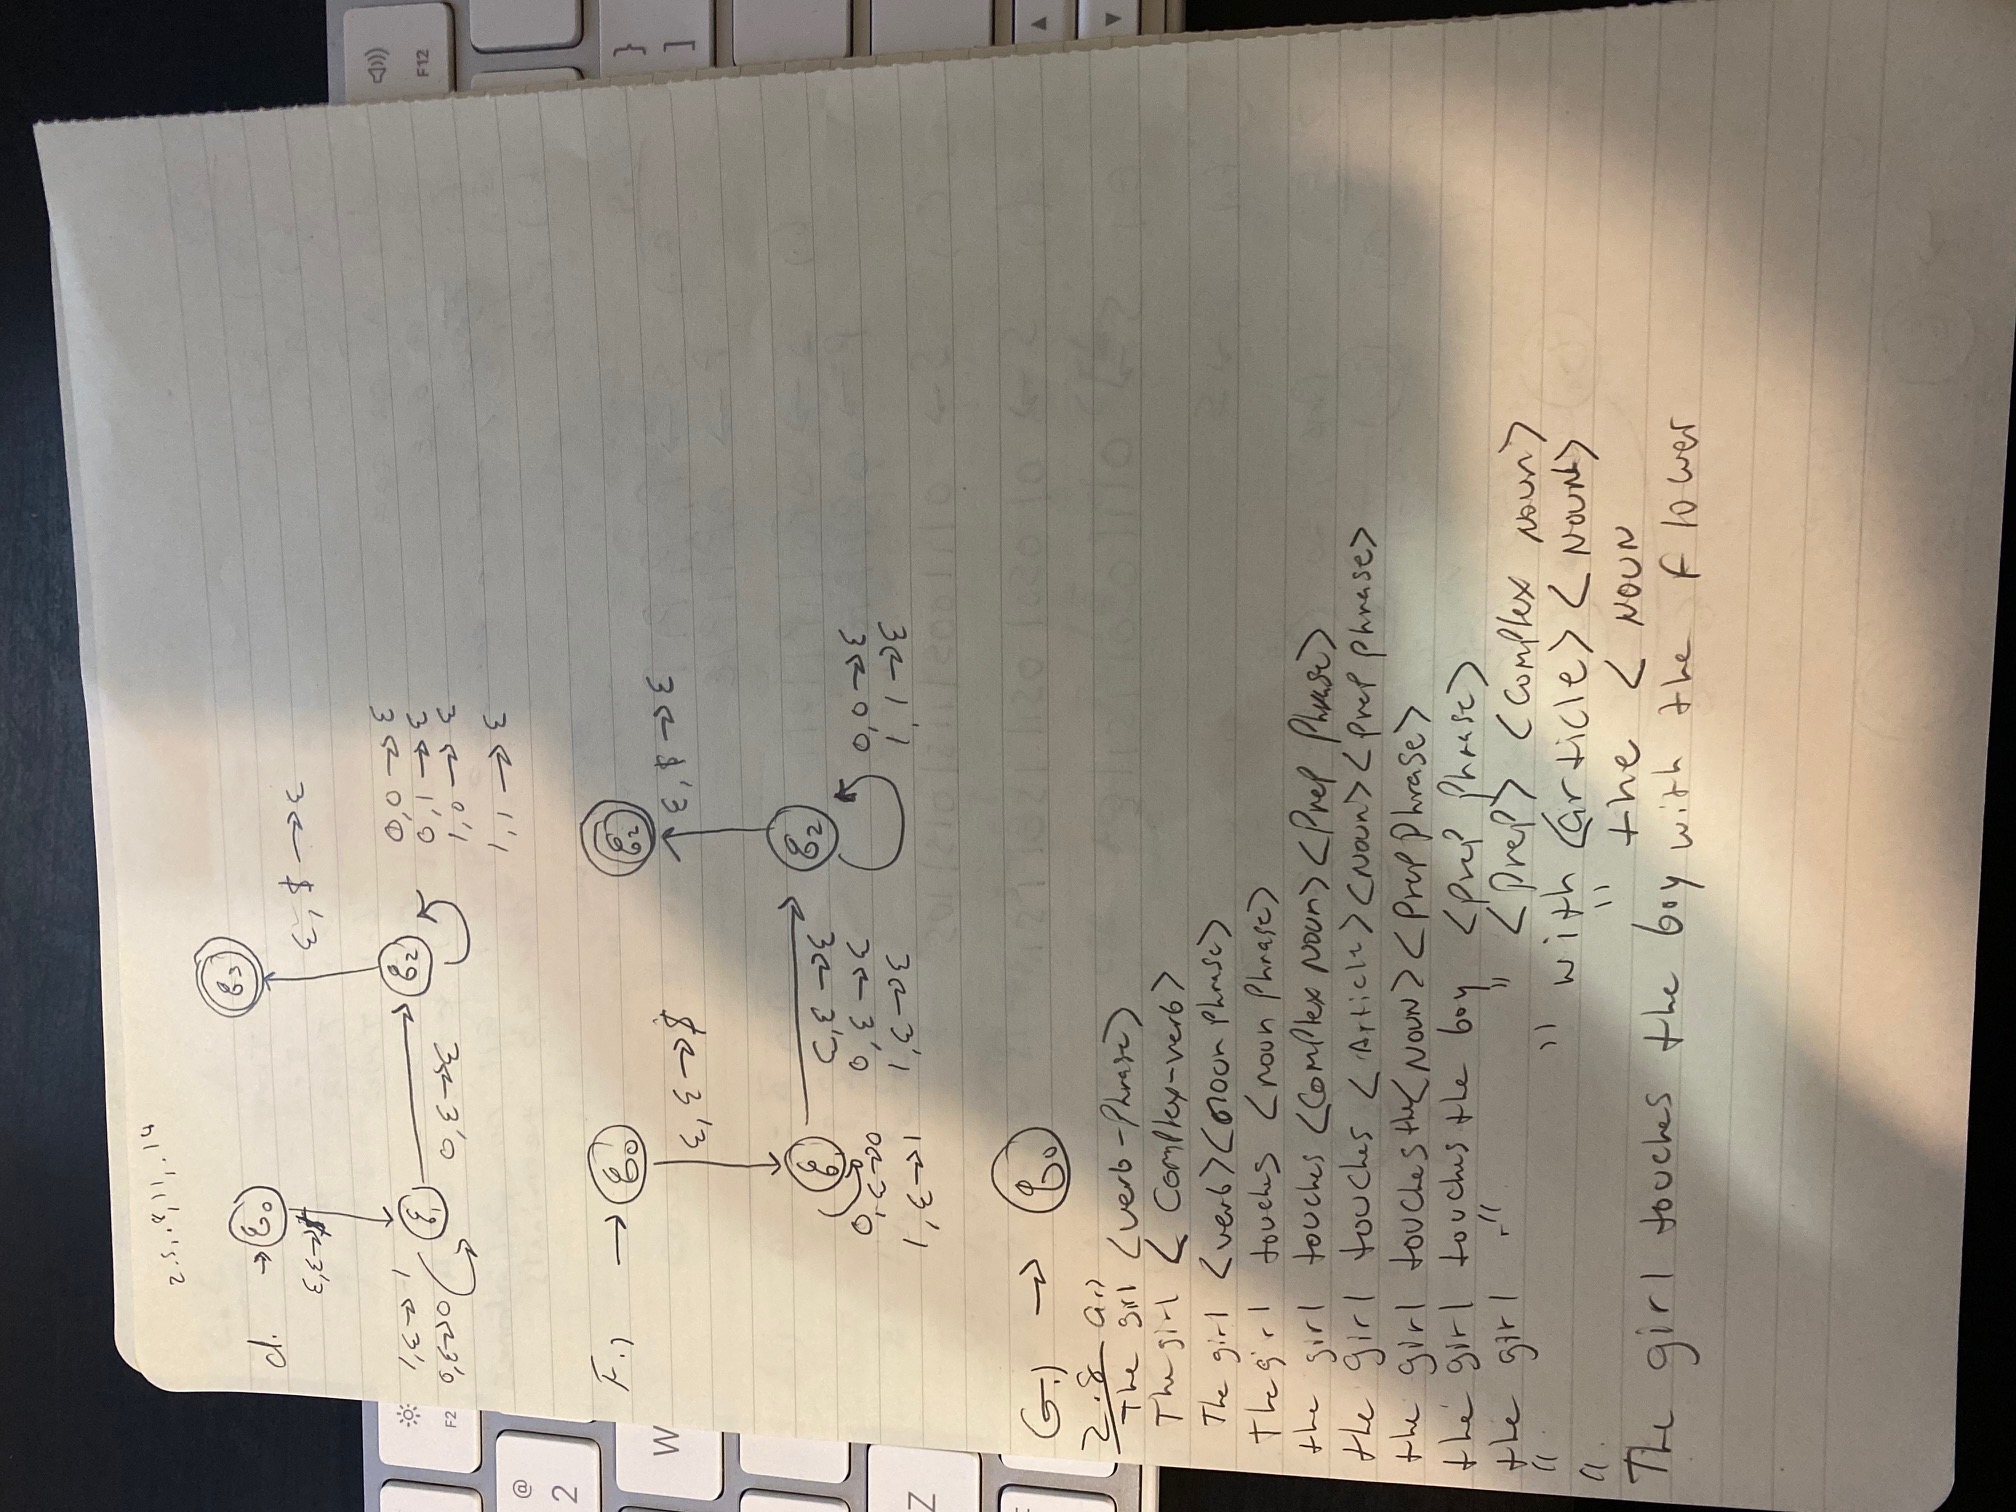 2.5, .8, 11, .14
d. → q0 q3
ε,ε→$ ε,$→ε
1,ε→1 q1 q2 0,0→ε
0,ε→0 0,ε→ε 0,1→ε
1,0→ε
1,1→ε
F.) → q0 q2
ε,ε→$ ε,$→ε
q1 q2
ε,ε→ε
0,ε→0 0,ε→ε 0,0→ε
1,ε→1 1,ε→ε 1,1→ε
G.) → q0
2.8 a.)
The girl <verb-Phrase>
The girl < Complex-verb>
The girl <verb><noun Phrase>
The girl touches <noun Phrase>
the girl touches <Complex Noun><Prep Phrase>
the girl touches <Article><Noun><prep phrase>
the girl touches the <NOUN><Prep Phrase>
the girl touches the boy <prep phrase>
the girl " " <prep> <complex noun>
" " with <article> <NOUN>
" " the < NOUN
The girl touches the boy with the flower
@
2
F2
W
Z
F
F12
}
]